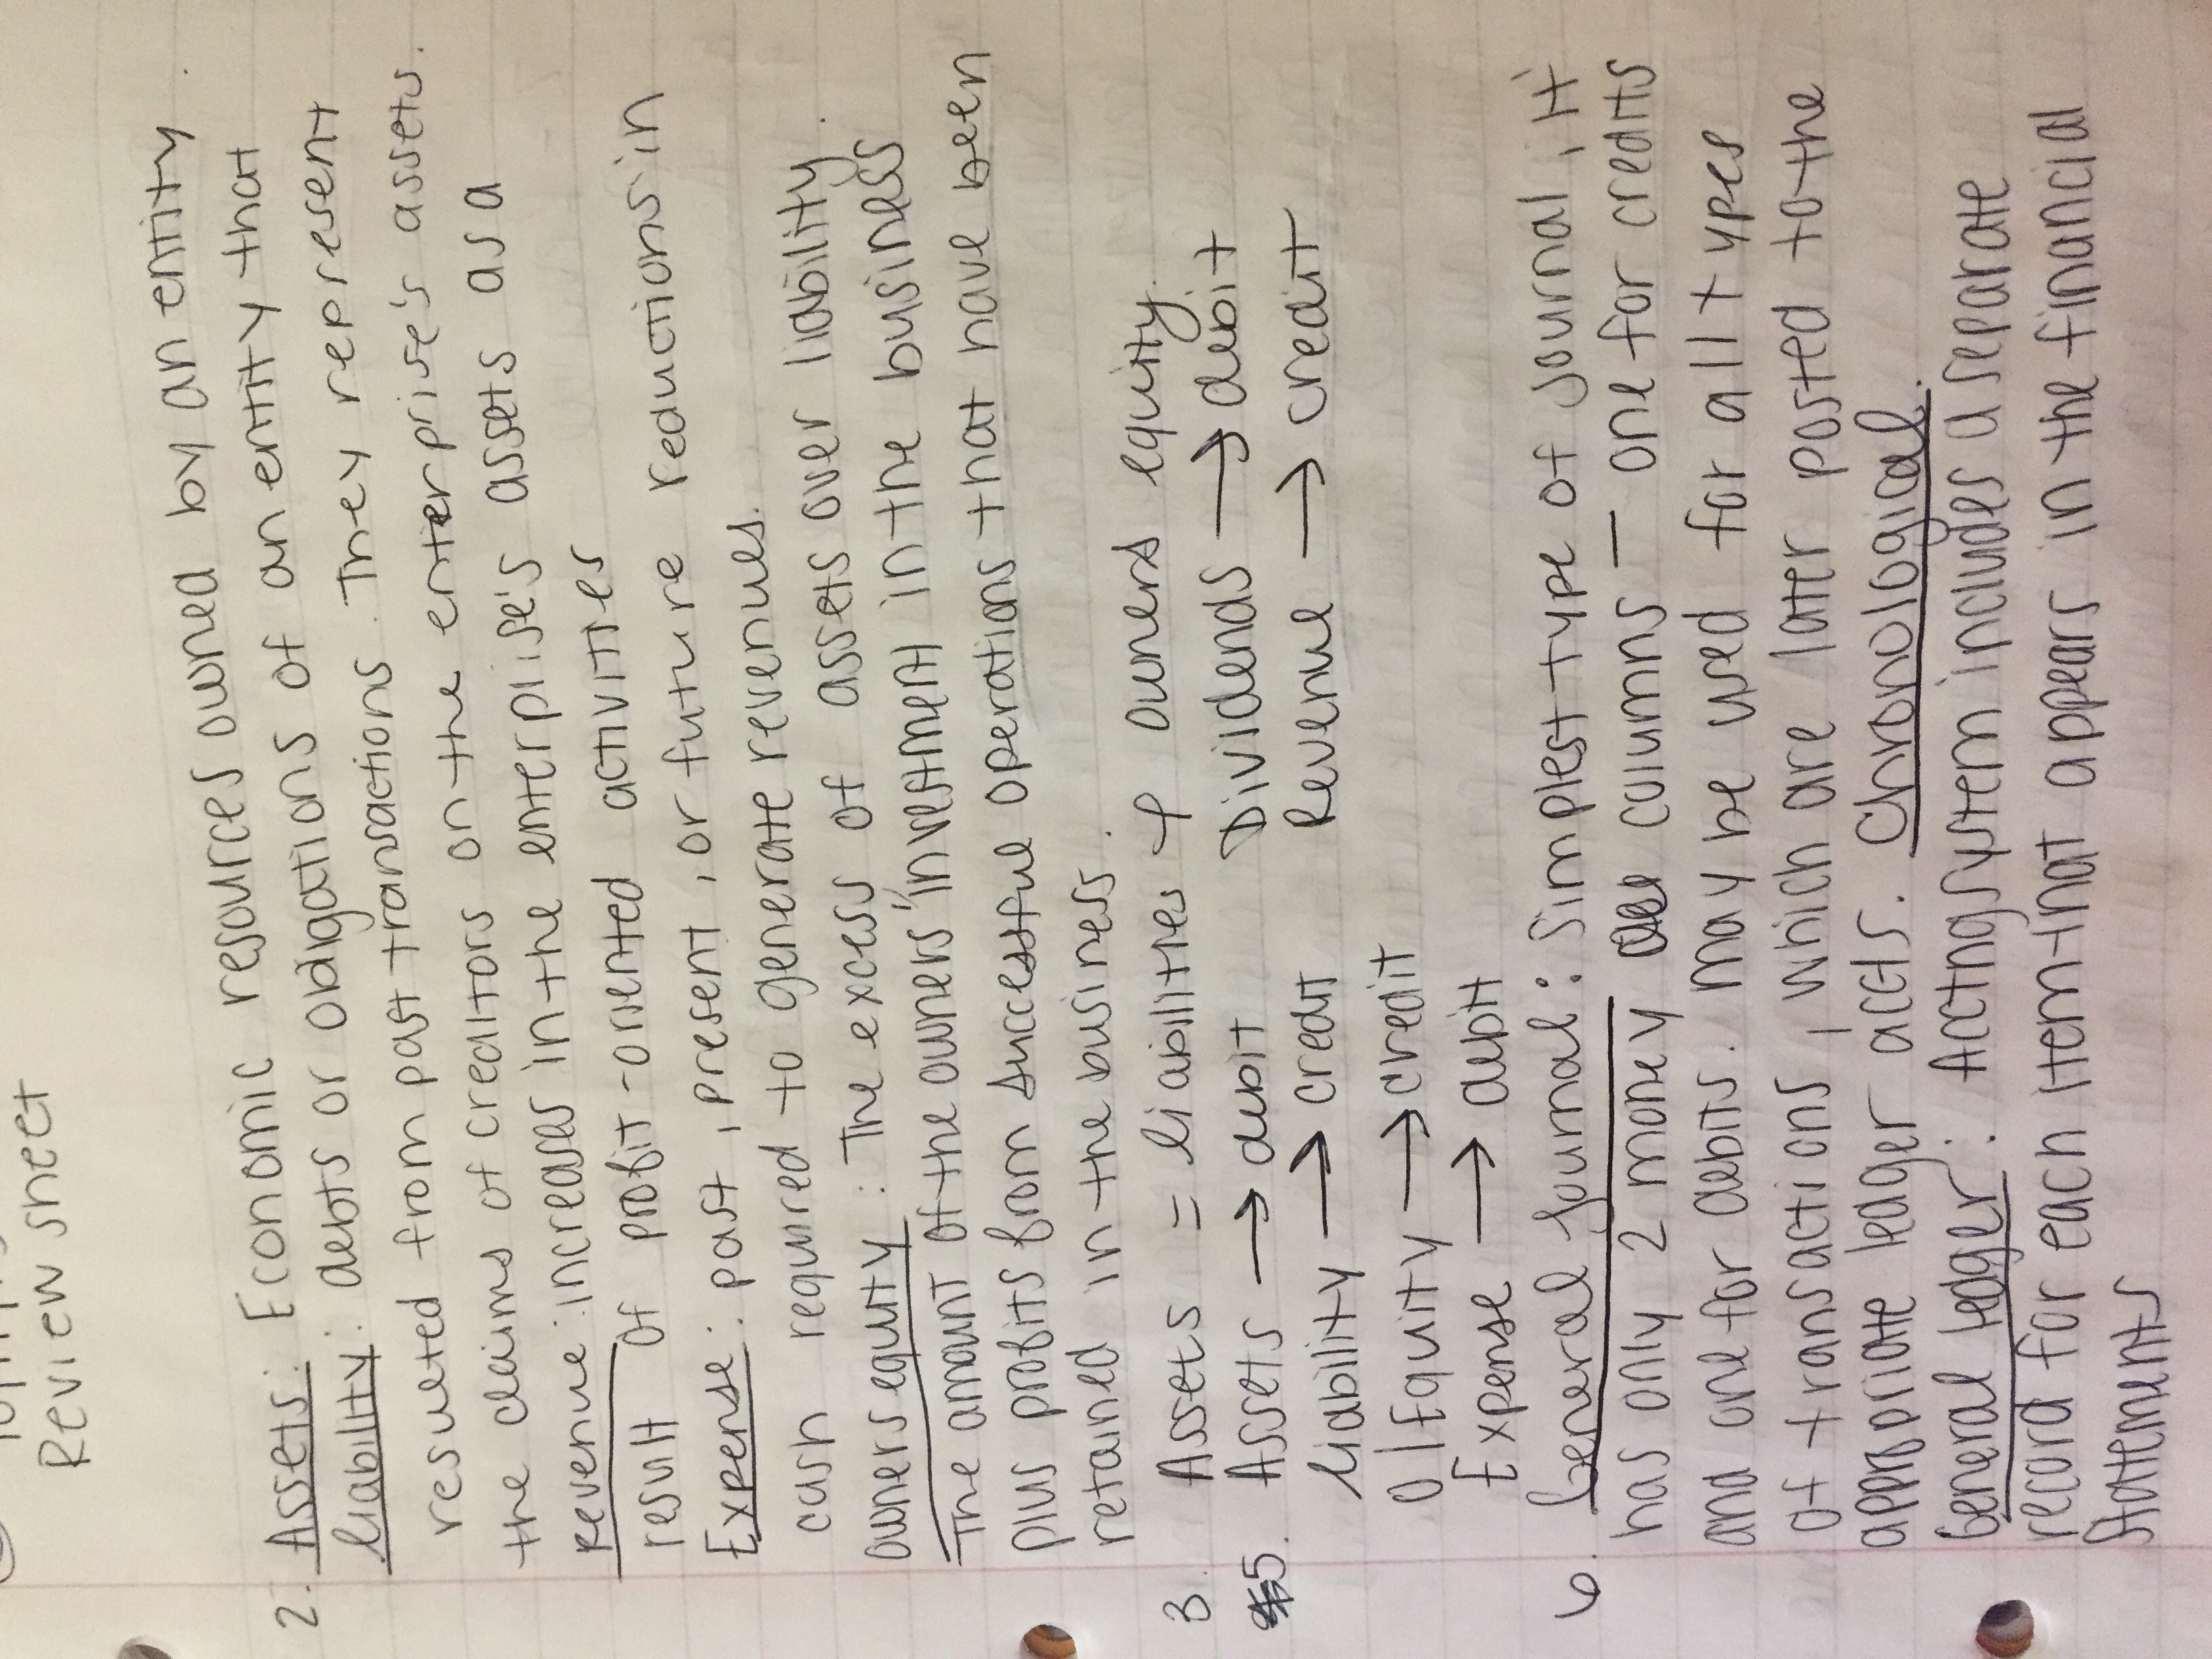 Review sheet
2. Assets: Economic resources owned by an entity.
liability: debts or obligations of an entity that
resulted from past transactions. They represent
the claims of creditors on the enterprise's assets.
Revenue: increases in the enterprise's assets as a
result of profit-oriented activities
Expense: past, present, or future reductions in
cash required to generate revenues.
owners equity: The excess of assets over liability.
The amount of the owners' investment in the business
plus profits from successful operations that have been
retained in the business.
3. Assets = liabilities + owners equity.
5. Assets → debit Dividends → debit
liability → credit Revenue → credit
O/Equity → credit
Expense → debit
6. General Journal: Simplest type of journal, it
has only 2 money columns - one for credits
and one for debits. may be used for all types
of transactions, which are later posted to the
appropriate ledger accts. Chronological.
General ledger: Acctng system includes a separate
record for each item that appears in the financial
statements